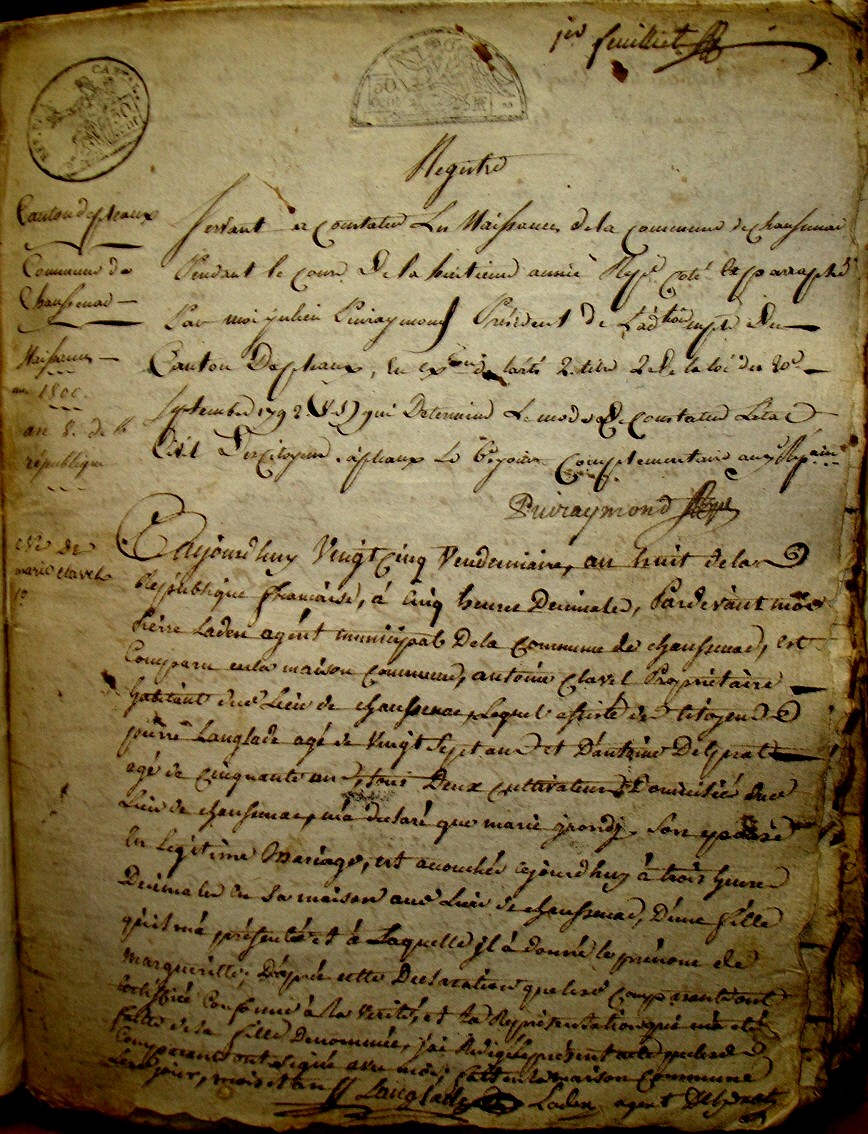 1er feuillet
Registre
Canton de pleaux
Commune de
Chaussenac
Naissances
an 1800.
an 8. de la
république
Servant a Constater Les Naissances de la Commune de Chaussenac
Pendant le Cours De la huitieme année Repne Coté et parraphé
Par moi julien Puiraymond Président De L'adtion mpale Du
Canton De pleaux, En exon de l'arte 2. titre 2 De la loi du 20e
Septembre 1792 (V.S) qui Determine Le mode De Constater L'etat
Civil Des Citoyens. a pleaux Le 6e jour Complementaire an 7 Repain
Puiraymond
No De
marie clavel
1o
Cejourd'huy Vingt Cinq Vendemiaire, an huit de la
Republique française, à Cinq heures Decimales, Pardevant moi
Pierre Laden agent municipal De la Commune de chaussenac, est
Comparu en la maison Commune, antoine Clavel Propriétaire
habitant du Lieu de chaussenac, Lequel assisté de Citoyens
pierre Langlade agé de Vingt Sept ans et D'antoine Delprat
agé de Cinquante ans, tous Deux Cultivateurs Domiciliés du
Lieu de chaussenac, m'a declaré que marie Son epouse
En Legitime Mariage, est acouchée cejourd'huy à trois heures
Decimales En Sa maison au Lieu de chaussenac, D'une fille
qu'il m'a présenté et à Laquelle jl à donné le prénom de
margueritte; D'après cette Declaration que les Comparants ont
Certiffiée Conforme à la Verité, et la Représentation qui m'a eté
faite de la fille Denommée, j'ai Redigé le présent acte que les
Comparants ont signé avec moi, fait en la maison Commune
Les jour, mois et an
Langlade Laden agent Delprat